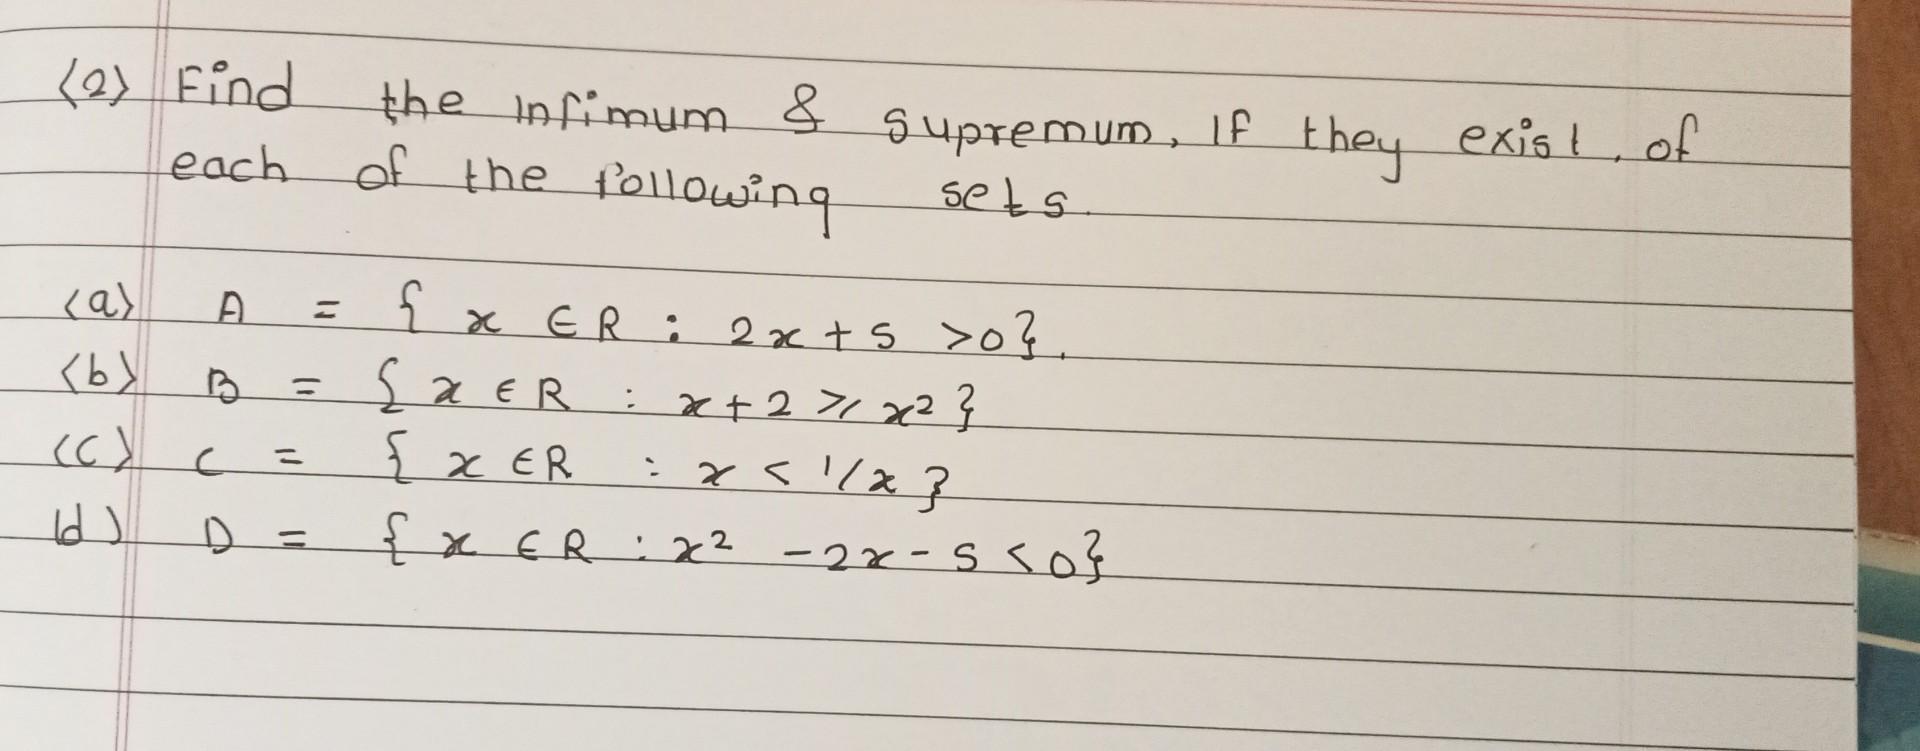 (2) Find the infimum & supremum, If they exist, of
each of the following sets.
(a) A = { x ∈ R : 2x + 5 > 0}.
(b) B = { x ∈ R : x + 2 ≥ x² }
(c) C = { x ∈ R : x < 1/x }
(d) D = { x ∈ R : x² - 2x - 5 < 0}